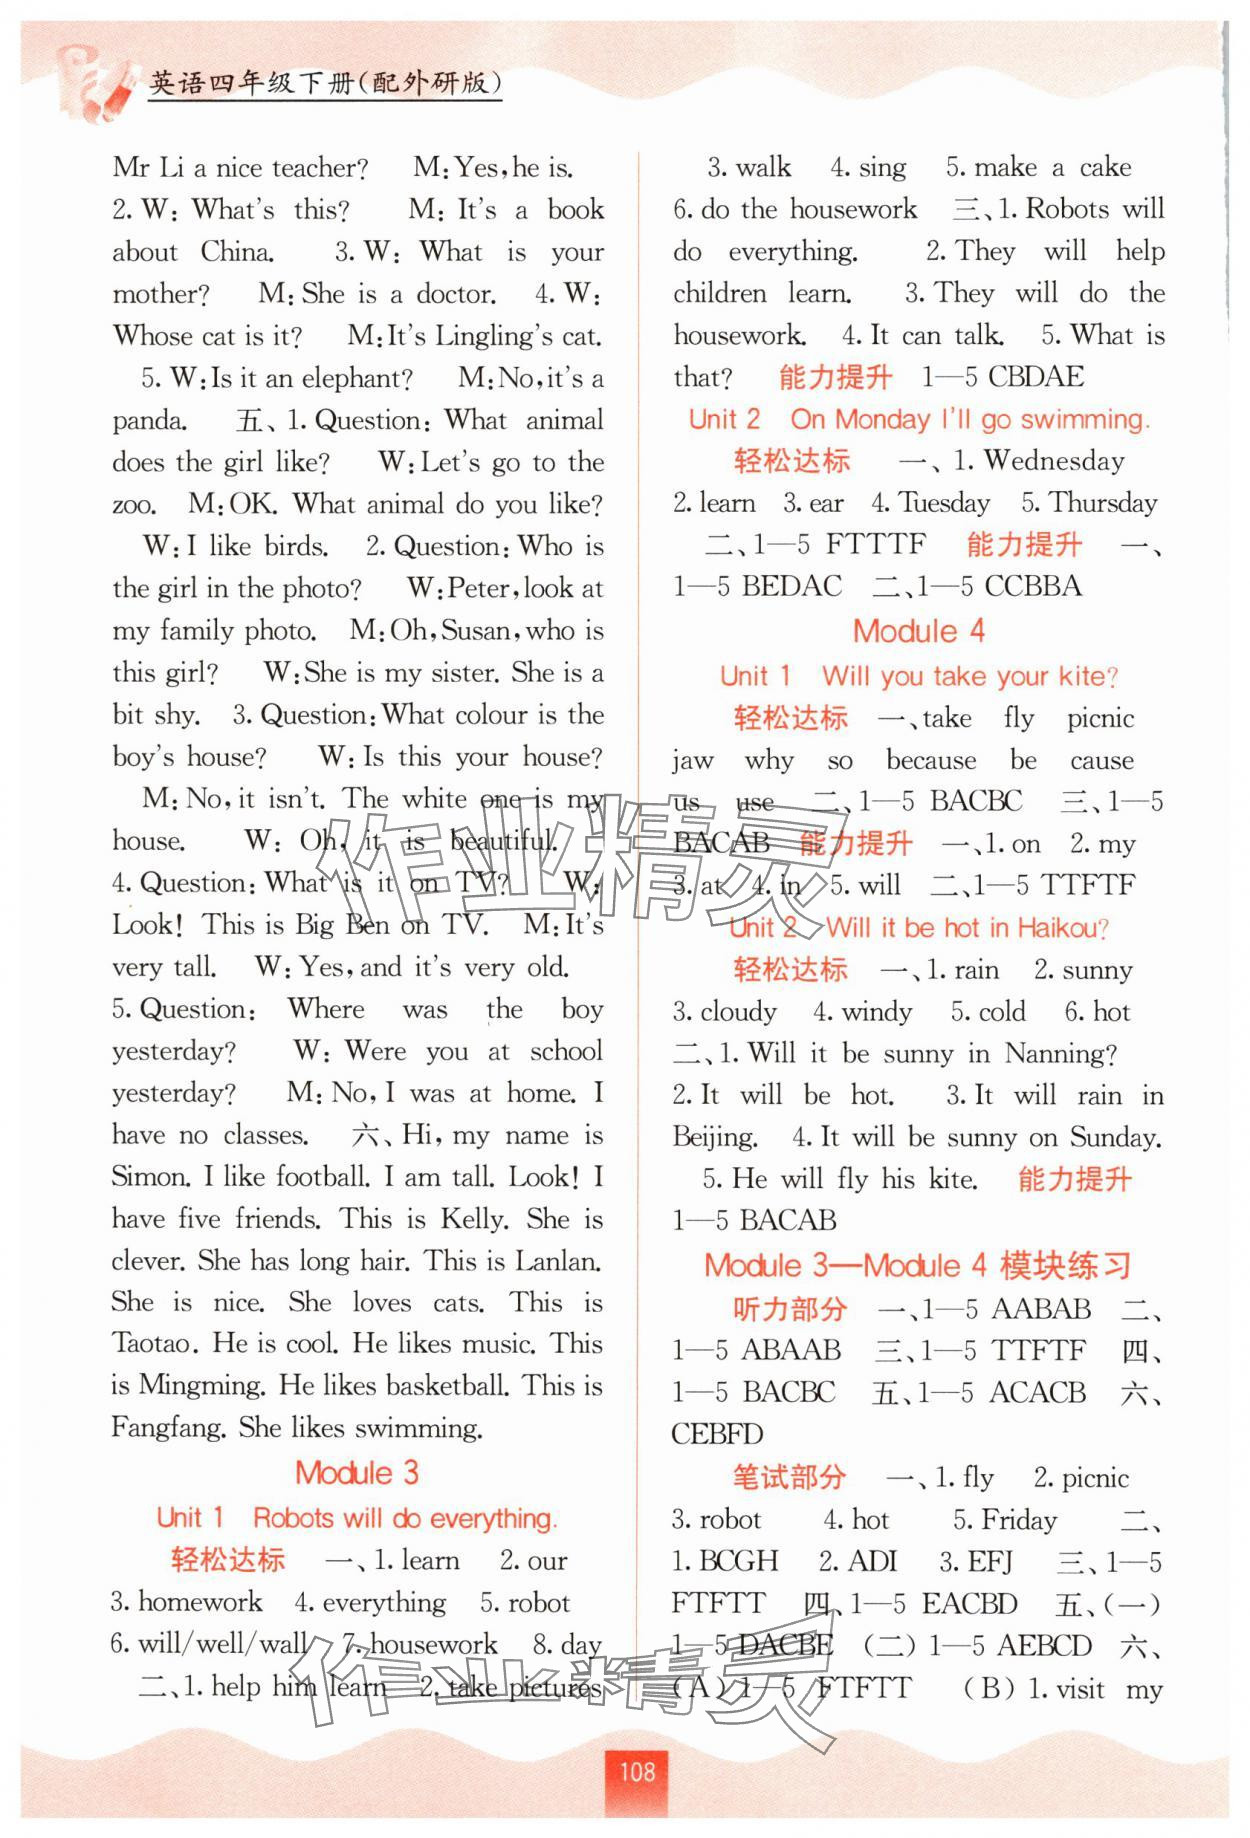 英语四年级下册(配外研版)
Mr Li a nice teacher? M:Yes,he is.
2. W: What's this? M: It's a book
about China. 3. W: What is your
mother? M:She is a doctor. 4. W:
Whose cat is it? M:It's Lingling's cat.
5. W:Is it an elephant? M:No,it's a
panda. 五、1. Question: What animal
does the girl like? W:Let's go to the
zoo. M:OK. What animal do you like?
W:I like birds. 2. Question:Who is
the girl in the photo? W:Peter,look at
my family photo. M:Oh,Susan,who is
this girl? W:She is my sister. She is a
bit shy. 3. Question:What colour is the
boy's house? W:Is this your house?
M:No,it isn't. The white one is my
house. W: Oh, it is beautiful.
4. Question:What is it on TV? W:
Look! This is Big Ben on TV. M:It's
very tall. W:Yes,and it's very old.
5. Question: Where was the boy
yesterday? W: Were you at school
yesterday? M:No,I was at home. I
have no classes. 六、Hi, my name is
Simon. I like football. I am tall. Look! I
have five friends. This is Kelly. She is
clever. She has long hair. This is Lanlan.
She is nice. She loves cats. This is
Taotao. He is cool. He likes music. This
is Mingming. He likes basketball. This is
Fangfang. She likes swimming.
Module 3
Unit 1 Robots will do everything.
轻松达标 一、1. learn 2. our
3. homework 4. everything 5. robot
6. will/well/wall 7. housework 8. day
二、1. help him learn 2. take pictures
3. walk 4. sing 5. make a cake
6. do the housework 三、1. Robots will
do everything. 2. They will help
children learn. 3. They will do the
housework. 4. It can talk. 5. What is
that? 能力提升 1—5 CBDAE
Unit 2 On Monday I'll go swimming.
轻松达标 一、1. Wednesday
2. learn 3. ear 4. Tuesday 5. Thursday
二、1—5 FTTTF 能力提升 一、
1—5 BEDAC 二、1—5 CCBBA
Module 4
Unit 1 Will you take your kite?
轻松达标 一、take fly picnic
jaw why so because be cause
us use 二、1—5 BACBC 三、1—5
BACAB 能力提升 一、1. on 2. my
3. at 4. in 5. will 二、1—5 TTFTF
Unit 2 Will it be hot in Haikou?
轻松达标 一、1. rain 2. sunny
3. cloudy 4. windy 5. cold 6. hot
二、1. Will it be sunny in Nanning?
2. It will be hot. 3. It will rain in
Beijing. 4. It will be sunny on Sunday.
5. He will fly his kite. 能力提升
1—5 BACAB
Module 3—Module 4 模块练习
听力部分 一、1—5 AABAB 二、
1—5 ABAAB 三、1—5 TTFTF 四、
1—5 BACBC 五、1—5 ACACB 六、
CEBFD
笔试部分 一、1. fly 2. picnic
3. robot 4. hot 5. Friday 二、
1. BCGH 2. ADI 3. EFJ 三、1—5
FTFTT 四、1—5 EACBD 五、(一)
1—5 DACBE (二) 1—5 AEBCD 六、
(A) 1—5 FTFTT (B) 1. visit my
作业精灵
作业精灵
108